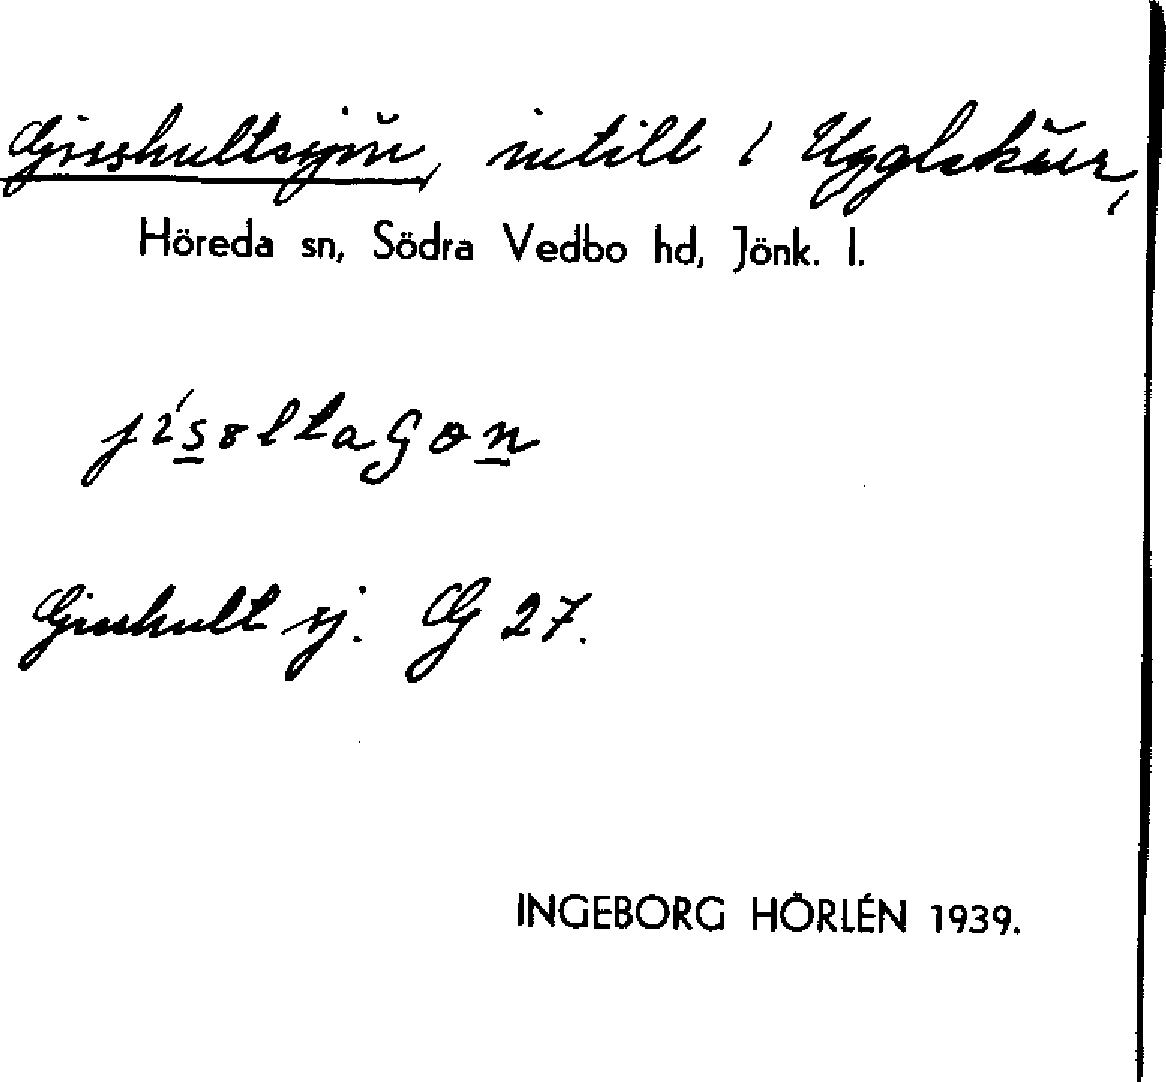 Gisshultsjön, intill / Ugglekärr,
Höreda sn, Södra Vedbo hd, Jönk. l.
Gisshult sj. G 27.
INGEBORG HÖRLÉN 1939.